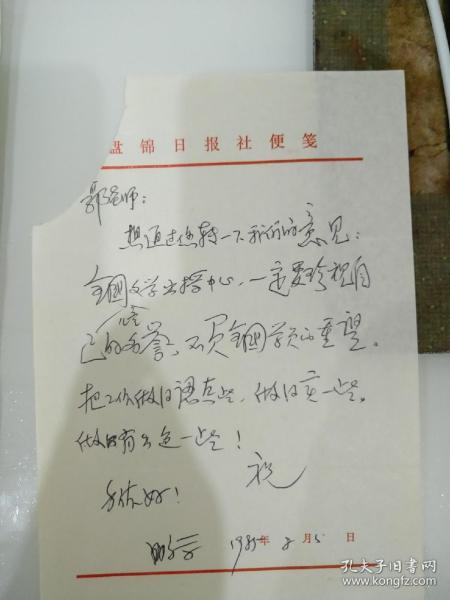 盘锦日报社便笺
郭老师:
想通过您转一下我们的意见:
全国文学函授中心,一定要珍视自
己的名誉,不负全国学员的重望。
把工作做得认真些,做得实一些,
做得有出色一些!
祝
年 月 日
孔夫子旧书网
www.kongfz.com